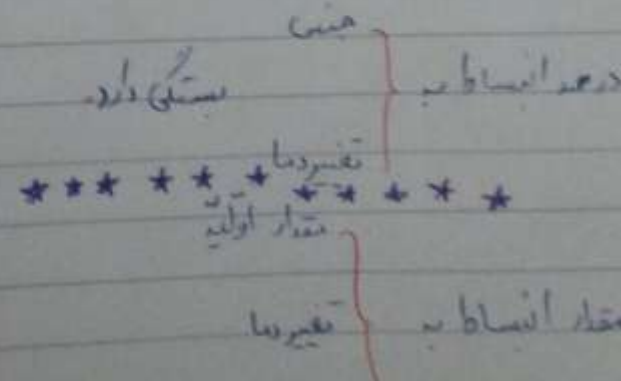 جنس
درصد انبساط به
بستگی دارد.
تغییر دما
مقدار اولیّه
مقدار انبساط به
تغییر دما